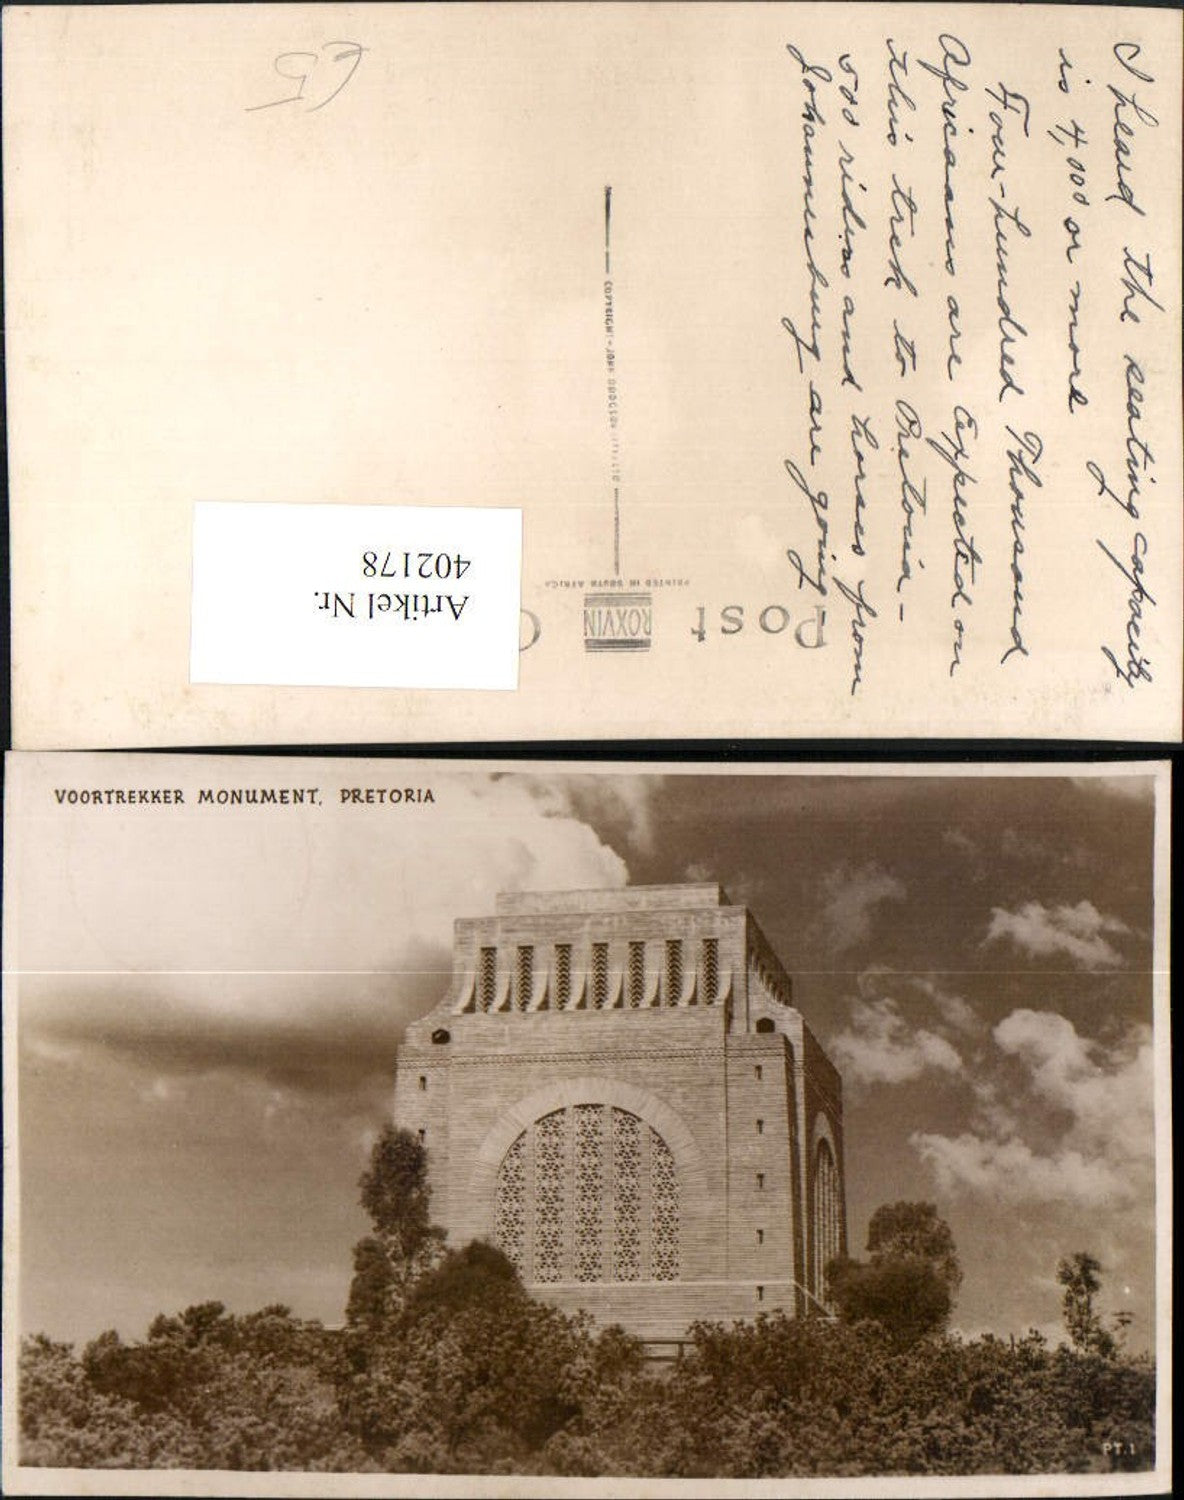 I heard the seating capacity
is 4,000 or more
Four-hundred Thousand
Africaans are Expected on
this trek to Pretoria -
500 riders and horses from
Johannesburg are going -
£5
COPYRIGHT - JOHN HODGSON (PTY.) LTD
PRINTED IN SOUTH AFRICA
Post C
ROXVIN
Artikel Nr.
402178
VOORTREKKER MONUMENT, PRETORIA
PT.1